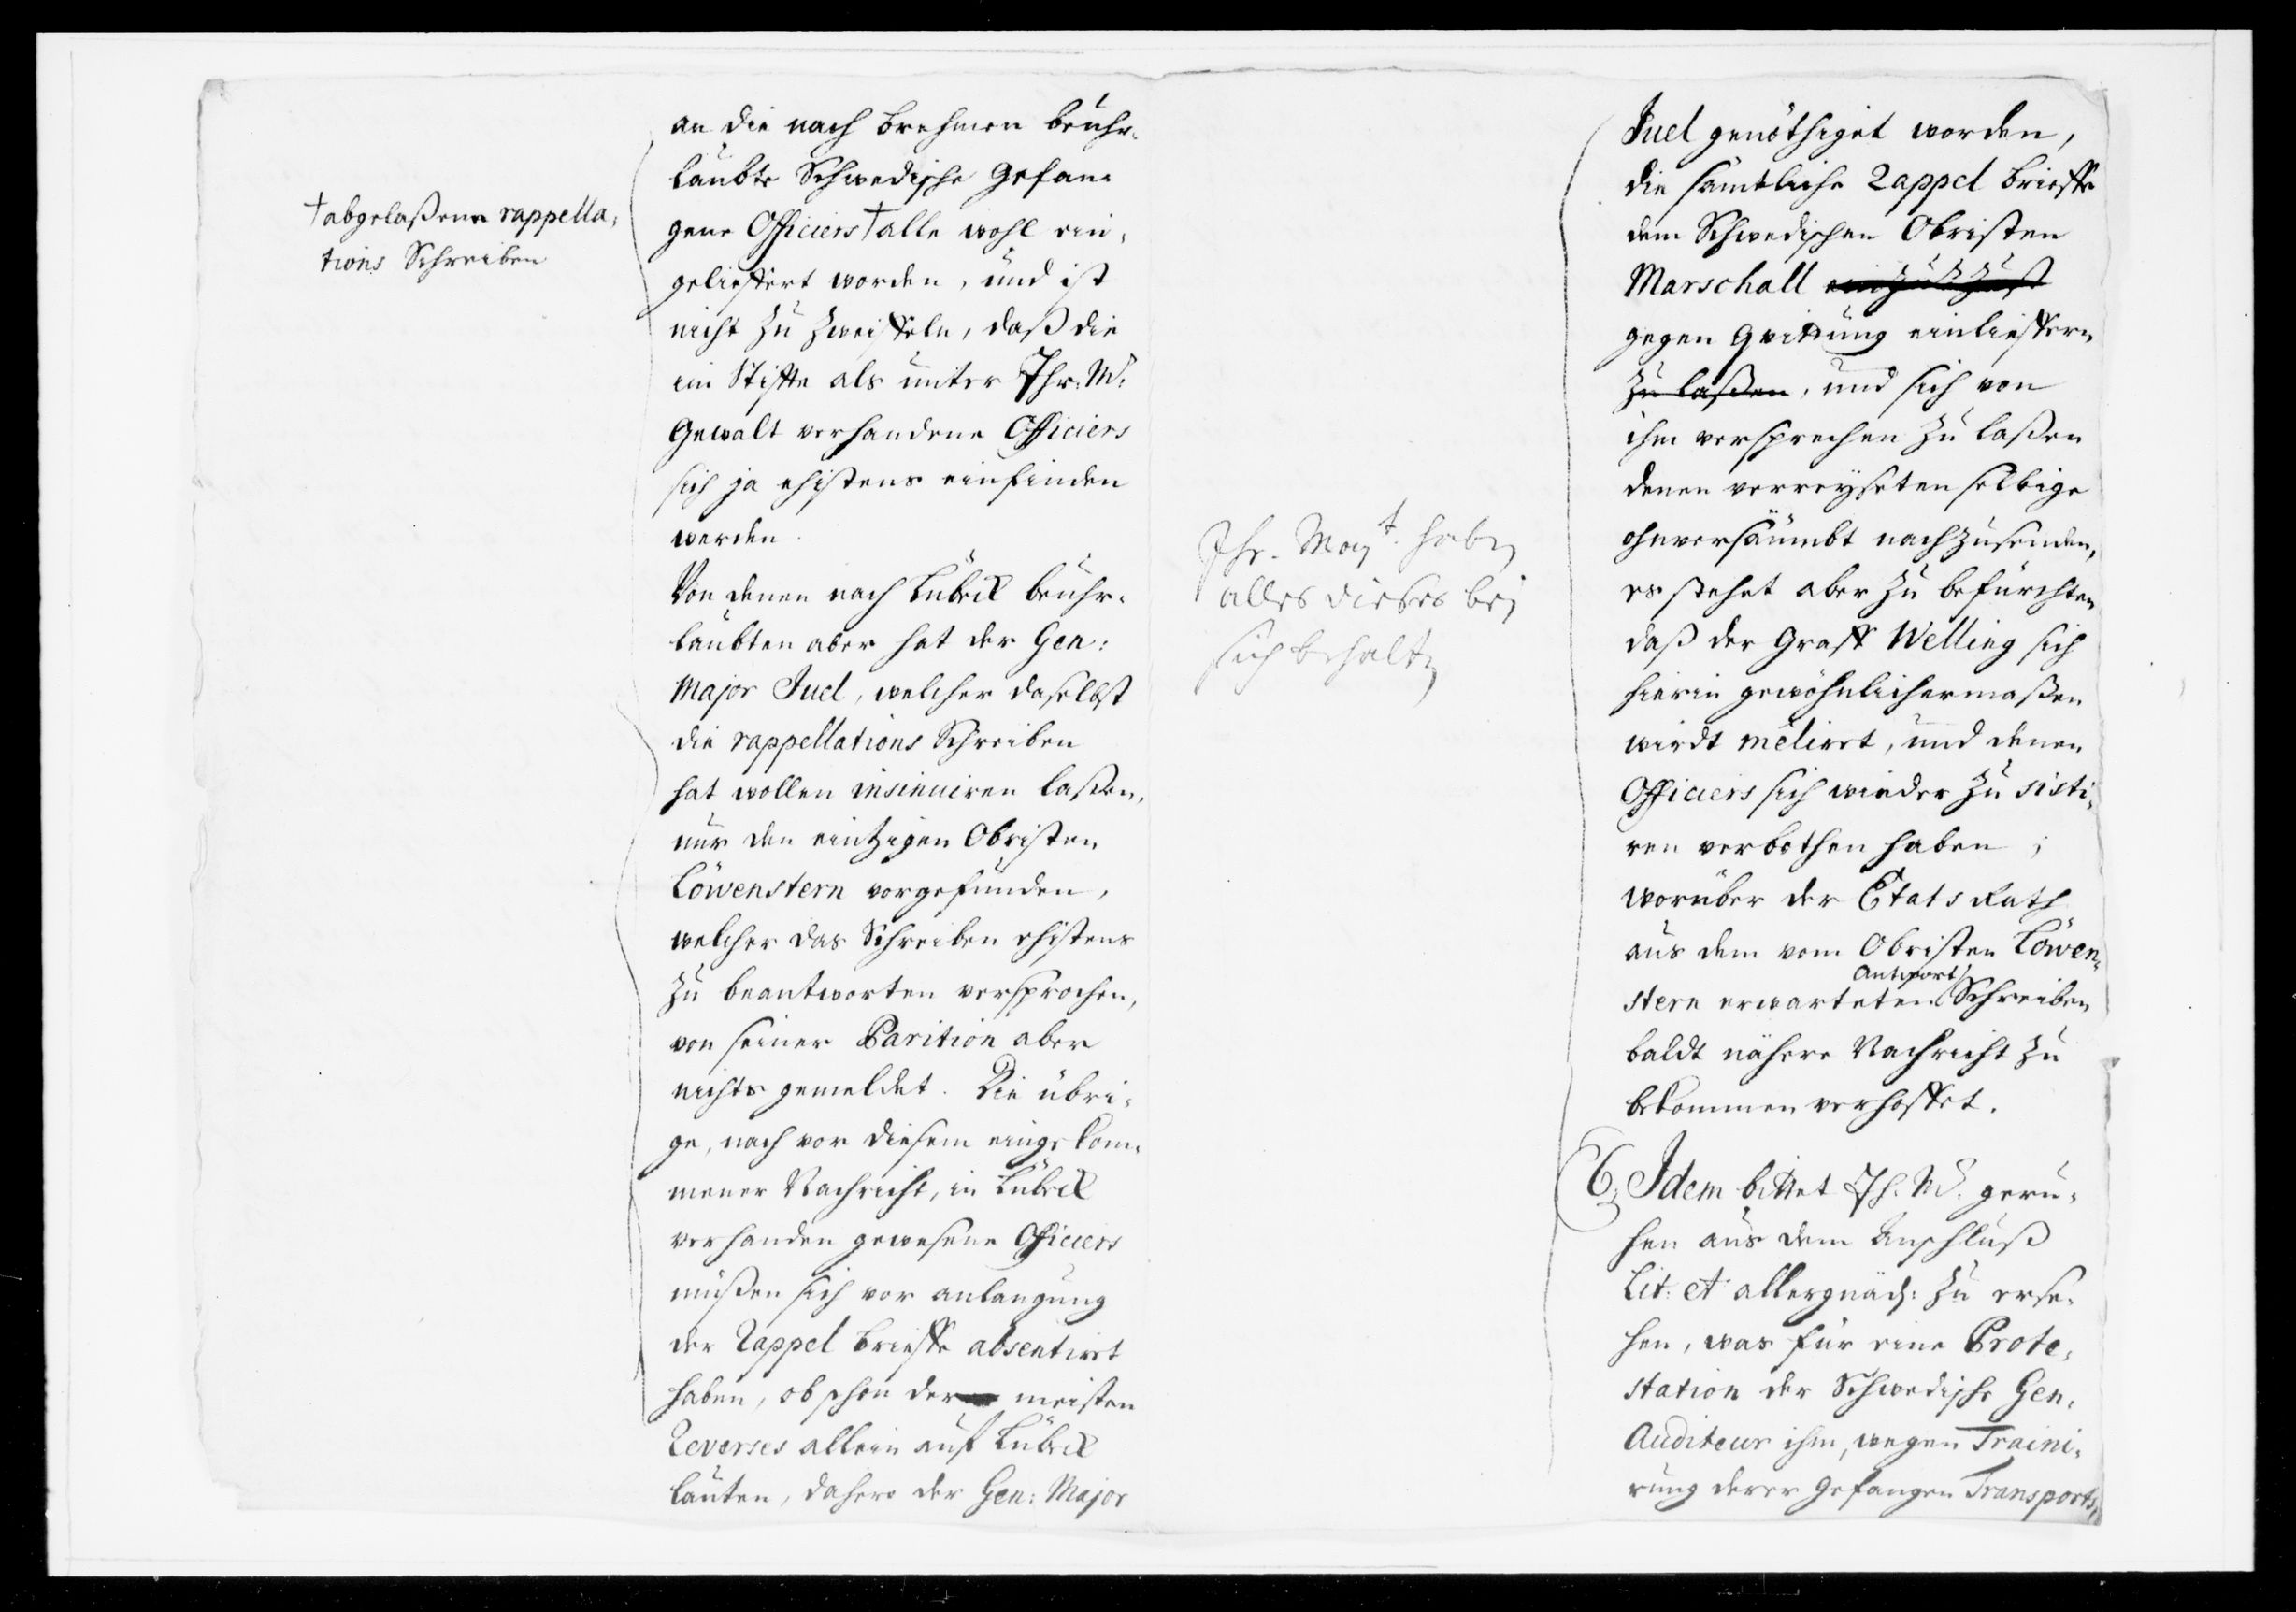 an die nach Brehmen beuhr-
laubte Schwedische Gefan-
gene Officiers † alle wohl ein-
† abgelaßene rappella-
tions Schreiben
gelieffert worden, und ist
nicht zu zweiffeln, daß die
im Stiffte als unter Ihr. M.
Gewalt verhandene Officiers
sich ja ehistens einfinden
werden.
Von denen nach Lübeck beuhr-
laubten aber hat der Gen:
Major Juel, welcher daselbst
die rappellations Schreiben
hat wollen insinuiren laßen,
nur den eintzigen Obristen
Löwenstern vorgefunden,
welcher das Schreiben ehistens
zu beantworten versprochen,
von seiner Parition aber
nichts gemeldet. Die übri-
ge, nach vor diesem eingekom-
mener Nachricht, in Lübeck
verhanden gewesene Officiers
müßen sich vor anlangung
der Rappel Brieffe absentirt
haben, obschon der meisten
Reverses allein auf Lübeck
lauten, dahero der Gen: Major
Ihr. Mayt. haben
alles dieses bey
sich behalten
Juel genöthiget worden,
die sämtliche Rappel Brieffe
dem Schwedischen Obristen
Marschall
gegen Qvittung einlieffern
zu laßen, und sich von
ihm versprechen zu laßen
denen verreyseten selbige
ohnversäumbt nachzusenden,
es stehet aber zu befürchten,
daß der Graff Welling sich
hierin gewöhnlichermaßen
wirdt mêlirt, und denen
Officiers sich wieder zu sisti-
ren verbothen haben;
worüber der Etats Rath
aus dem vom Obristen Löwen-
stern erwarteten Antwort Schreiben
baldt nähere Nachricht zu
bekommen verhoffet.
6, Idem bittet Ih. M. geru-
hen aus dem Anschluß
Lit. A allergnäd: zu erse-
hen, was für eine Prote-
station der Schwedische Gen.
Auditeur ihm, wegen Traini-
rung derer Gefangen Transports,